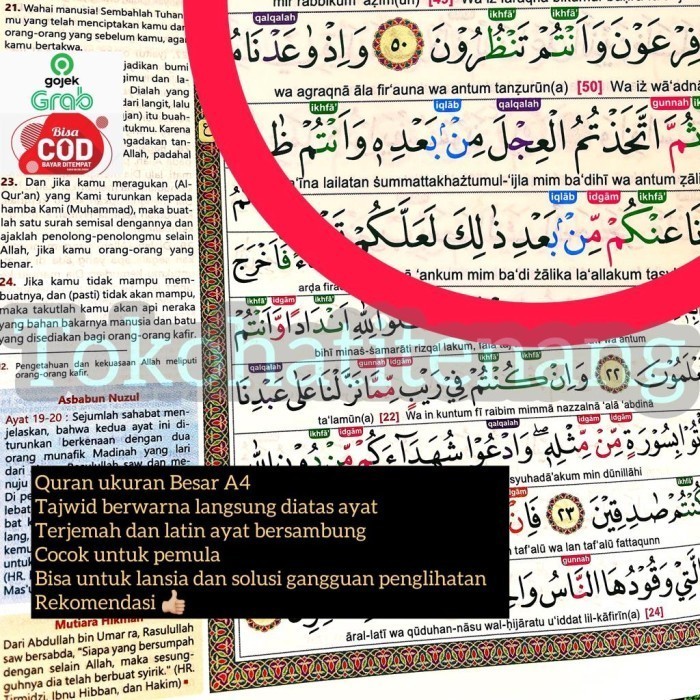 21. Wahai manusia! Sembahlah Tuhan
mu yang telah menciptakan kamu dan
orang-orang yang sebelum kamu, agar
kamu bertakwa.
jadikan bumi
gojek
Grab
Bisa
COD
BAYAR DITEMPAT
Dialah yang
dari langit, lalu
itu buah-
tukmu. Karena
ngadakan tan-
Allah, padahal
23. Dan jika kamu meragukan (Al-
Qur'an) yang Kami turunkan kepada
hamba Kami (Muhammad), maka buat-
lah satu surah semisal dengannya dan
ajaklah penolong-penolongmu selain
Allah, jika kamu orang-orang yang
benar.
24. Jika kamu tidak mampu mem-
buatnya, dan (pasti) tidak akan mampu,
maka takutlah kamu akan api neraka
yang bahan bakarnya manusia dan batu
yang disediakan bagi orang-orang kafir.
Pengetahuan dan kekuasaan Allah meliputi
orang-orang kafir.
Asbabun Nuzul
Ayat 19-20 : Sejumlah sahabat men-
jelaskan, bahwa kedua ayat ini di-
turunkan berkenaan dengan dua
orang munafik Madinah yang lari
dari Rasulullah saw dan me-
Mutiara Hikmah
Dari Abdullah bin Umar ra, Rasulullah
saw bersabda, "Siapa yang bersumpah
dengan selain Allah, maka sesung-
guhnya dia telah berbuat syirik." (HR.
Tirmidzi, Ibnu Hibban, dan Hakim)
qalqalah ikhfā' ikhfā'
فِرْعَوْنَ وَاَنْتُمْ تَنْظُرُوْنَ ٥٠ وَاِذْ وٰعَدْنَا
wa agraqnā āla fir'auna wa antum tanẓurūn(a) [50] Wa iż wā'adnā
ikhfā' iqlāb qalqalah gunnah
اتَّخَذْتُمُ الْعِجْلَ مِنْۢ بَعْدِهٖ وَاَنْتُمْ
lailatan ṡummattakhażtumul-'ijla mim ba'dihī wa antum
iqlāb idgām ikhfā'
عَنْكُمْ مِّنْۢ بَعْدِ ذٰلِكَ لَعَلَّكُمْ
'ankum mim ba'di żālika la'allakum
فَاَخْرَجَ
ikhfā' idgām ikhfā'
اَنْدَادًا وَّاَنْتُمْ
bihī minaṡ-ṡamarāti rizqal lakum,
qalqalah gunnah idgām ikhfā' ikhfā'
٢٢ وَاِنْ كُنْتُمْ فِيْ رَيْبٍ مِّمَّا نَزَّلْنَا عَلٰى عَبْدِنَا
ta'lamūn(a) [22] Wa in kuntum fī raibim mimmā nazzalnā 'alā 'abdinā
ikhfā' idgām qalqalah idgām
بِسُوْرَةٍ مِّنْ مِّثْلِهٖ وَادْعُوْا شُهَدَاۤءَكُمْ مِّنْ دُوْنِ اللّٰهِ
syuhadā'akum min dūnillāhi
كُنْتُمْ صٰدِقِيْنَ ٢٣
taf'alū wa lan taf'alū fattaqunn
gunnah
الَّتِيْ وَقُوْدُهَا النَّاسُ
āral-latī wa qūduhan-nāsu wal-ḥijāratu u'iddat lil-kāfirīn(a) [24]
Tokohattenang
Quran ukuran Besar A4
Tajwid berwarna langsung diatas ayat
Terjemah dan latin ayat bersambung
Cocok untuk pemula
Bisa untuk lansia dan solusi gangguan penglihatan
Rekomendasi 👍🏻